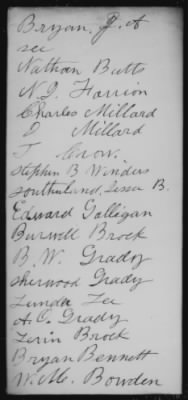 Bryan, J. A
see
Nathan Butts
N. J. Harrion
Charles Millard
J Millard
T Crow.
Stephen B Winders
Southerland, Jesse B.
Edward Galligan
Burwell Brock
B. W. Grady
Sherwood Grady
Lunda Lee
A. O. Grady
Zerin Brock
Bryan Bennett
W. M. Bowden